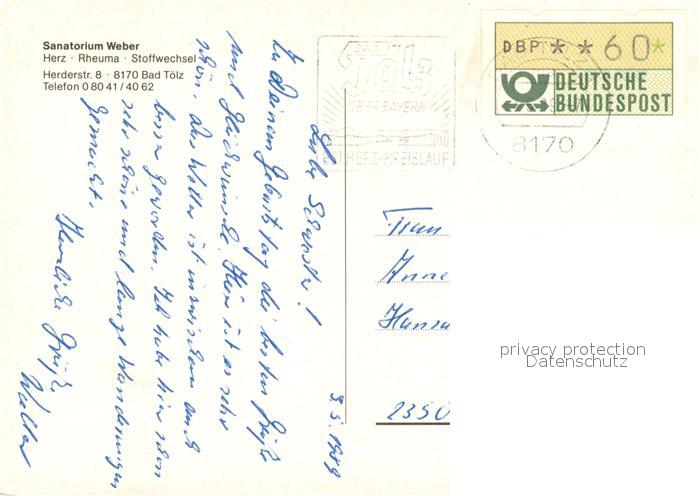 Sanatorium Weber
Herz · Rheuma · Stoffwechsel
Herderstr. 8 · 8170 Bad Tölz
Telefon 0 80 41 / 40 62
BAD
Tölz
OBERBAYERN
HERZ-KREISLAUF
DBP * * 60 *
DEUTSCHE
BUNDESPOST
8170
3.5.1989
Liebe Schwester!
Zu Deinem Geburtstag die besten Grüße
und Glückwünsche. Hier ist es sehr
schön, das Wetter ist inzwischen auch
besser geworden. Ich habe hier schon
sehr schöne und lange Wanderungen
gemacht.
Herzliche Grüße
Walter
Frau
Anne
Hansa
2350
privacy protection
Datenschutz